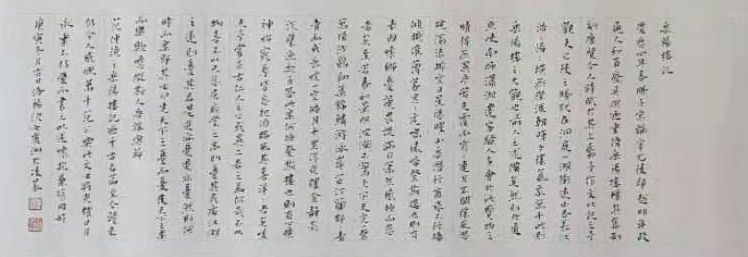 岳陽樓記
慶歷四年春滕子京謫守巴陵郡越明年政
通人和百廢具興乃重修岳陽樓增其舊制
刻唐賢今人詩賦於其上屬予作文以記之予
觀夫巴陵勝狀在洞庭一湖銜遠山吞長江
浩浩湯湯橫無際涯朝暉夕陰氣象萬千此則
岳陽樓之大觀也前人之述備矣然則北通
巫峽南極瀟湘遷客騷人多會於此覽物之
情得無異乎若夫霪雨霏霏連月不開陰風怒
號濁浪排空日星隱曜山岳潛形商旅不行檣
傾楫摧薄暮冥冥虎嘯猿啼登斯樓也則有
去國懷鄉憂讒畏譏滿目蕭然感極而悲
者矣至若春和景明波瀾不驚上下天光一碧
萬頃沙鷗翔集錦鱗游泳岸芷汀蘭郁郁青
青而或長煙一空皓月千里浮光耀金靜影
沉璧漁歌互答此樂何極登斯樓也則有心曠
神怡寵辱皆忘把酒臨風其喜洋洋者矣嗟
夫予嘗求古仁人之心或異二者之為何哉不以
物喜不以己悲居廟堂之高則憂其民處江湖
之遠則憂其君是進亦憂退亦憂然則何
時而樂耶其必曰先天下之憂而憂後天下之樂
而樂歟噫微斯人吾誰與歸
范仲淹之岳陽樓記千古名篇